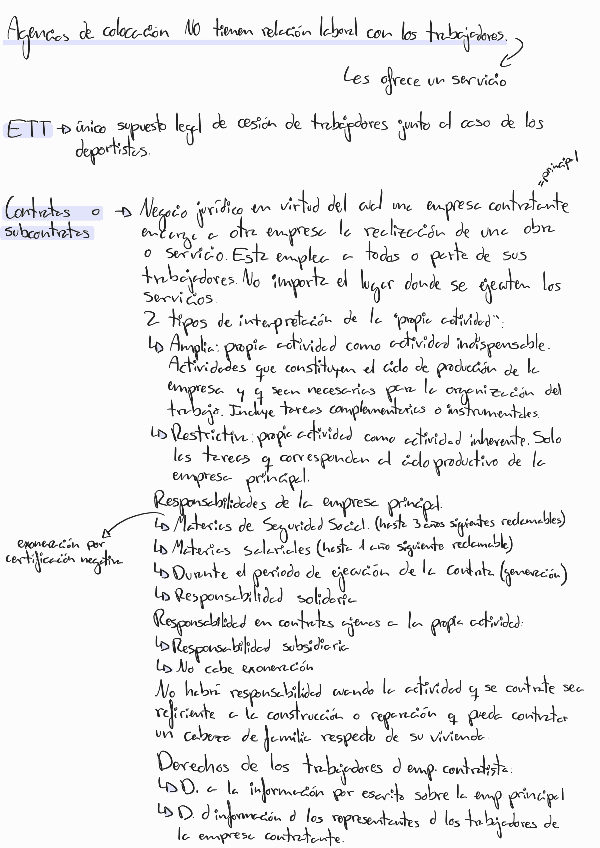 Agencias de colocación NO tienen relación laboral con los trabajadores.
Les ofrece un servicio
ETT → único supuesto legal de cesión de trabajadores junto al caso de los
deportistas.
= principal
Contratas o → Negocio jurídico en virtud del cual una empresa contratante
subcontratas
encarga a otra empresa la realización de una obra
o servicio. Esta emplea a todos o parte de sus
trabajadores. No importa el lugar donde se ejecuten los
servicios.
2 tipos de interpretación de la "propia actividad":
↳ Amplia: propia actividad como actividad indispensable.
Actividades que constituyen el ciclo de producción de la
empresa y q sean necesarias para la organización del
trabajo. Incluye tareas complementarias o instrumentales.
↳ Restrictiva: propia actividad como actividad inherente. Solo
las tareas q corresponden al ciclo productivo de la
empresa principal.
Responsabilidades de la empresa principal.
↳ Materias de Seguridad Social. (hasta 3 años siguientes reclamables)
exoneración por
certificación negativa
↳ Materias salariales (hasta 1 año siguiente reclamable)
↳ Durante el periodo de ejecución de la contrata (generación)
↳ Responsabilidad solidaria
Responsabilidad en contratas ajenas a la propia actividad:
↳ Responsabilidad subsidiaria
↳ No cabe exoneración
No habrá responsabilidad cuando la actividad q se contrate sea
refiriente a la construcción o reparación q pueda contratar
un cabeza de familia respecto de su vivienda.
Derechos de los trabajadores d emp. contratista:
↳ D. a la información por escrito sobre la emp principal
↳ D. d información d los representantes d los trabajadores de
la empresa contratante.